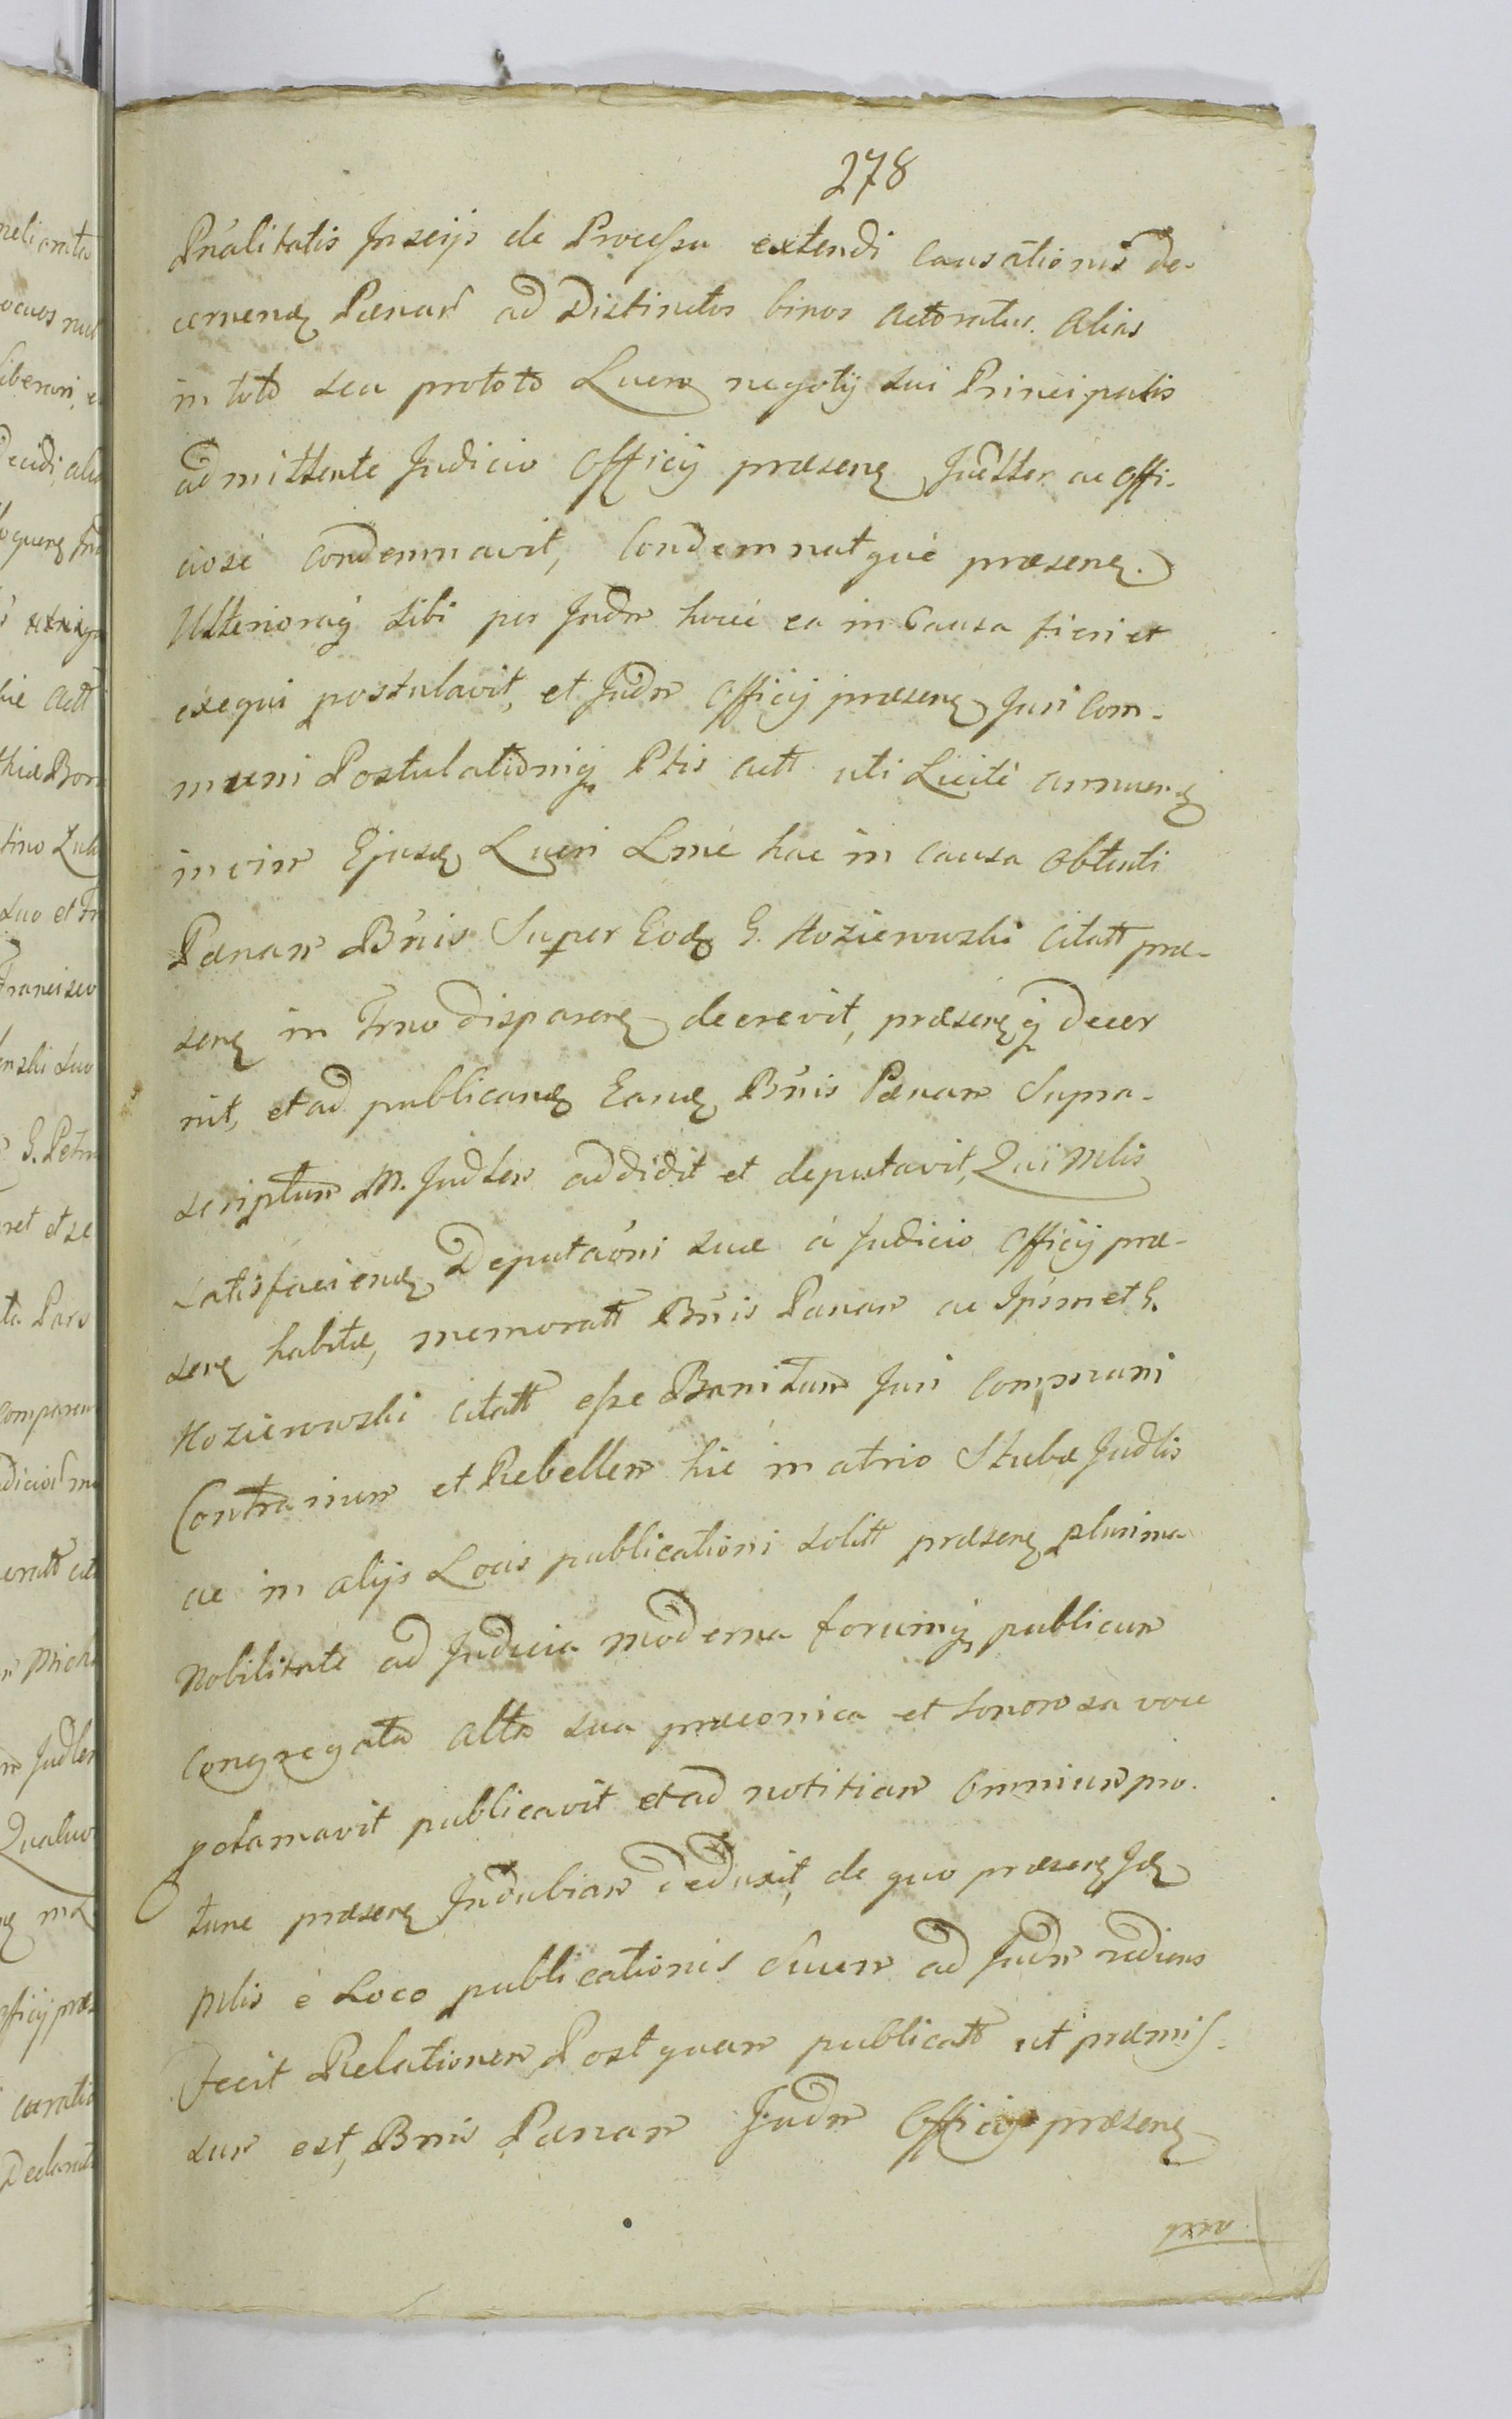 278
Pnalitatis Inserijs de Processu extendi Causationis de-
cernend Pænam ad Distinctos binos Actoratus. Alias
in toto seu pro toto Lucro negotij sui Principalis
admittente Judicio Officij præsens Judltter ac Offi-
ciosè condemnavit, Condemnatquè præsens.
Ulterioraq sibi per Judm hocce ea in Causa fieri et
exequi postulavit, et Judm Officij præsens Juri Com-
muni Postulationiq Ptis Actt uti Licitè annuens
in vim Ejusd Lucri Lmè hac in causa obtenti
Pænam Bnis Super Eod G. Kozierowski Citatt præ-
sens in Trno disparens decrevit, præsensq decer
nit, et ad publicand Eand Bnis Pænam Supra-
scriptum M. Judlem addidit et deputavit, Qui Mlis
satisfaciend Deputaoni suæ à Judicio Officij præ-
sens habitæ, memoratt Bnis Pænam ac Ipsmet G.
Kozierowski citatt esse Banitum Juri Communi
Contrarium et Rebellem hic in atrio Stubæ Judlis
ac in alijs Locis publicationi solitt præsens plurima
Nobilitate ad Judicia moderna forumq publicum
Congregata alta sua præconica et sonorosa voce
proclamavit publicavit et ad notitiam omnium pro.
tunc præsens Indubiam deduxit, de quo præsens Id
Mlis è Loco publicationis suum ad Judm rediens
Fecit Relationem, Postquam publicatt ut præmis-
sum est, Bnis Pænam Judm Officij præsens
pro.